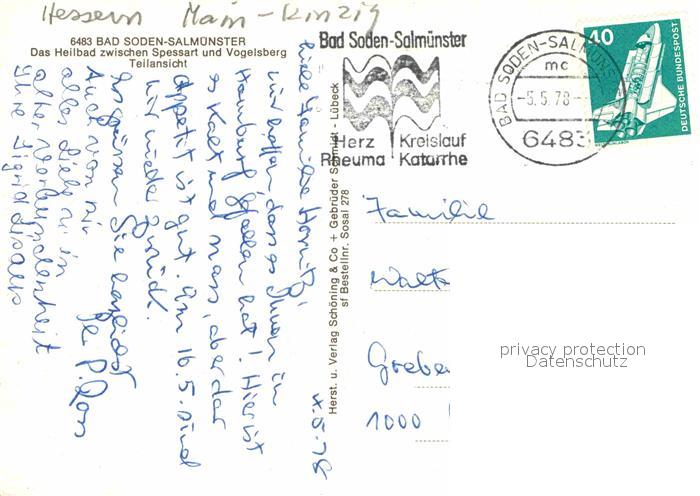 Hessen Main-Kinzig
6483 BAD SODEN-SALMÜNSTER
Das Heilbad zwischen Spessart und Vogelsberg
Teilansicht
Bad Soden-Salmünster
Herz Kreislauf
Rheuma Katarrhe
BAD SODEN-SALMÜNS
mc
-5.5.78-
6483
40
DEUTSCHE BUNDESPOST
4.5.78
Liebe Familie
wir hoffen, dass es Ihnen in
Hamburg gefallen hat! Hier ist
es kalt und nass, aber der
Appetit ist gut. Am 16.5. sind
wir wieder zurück.
Es grüssen Sie herzlichst
Ihr P.
Auch von mir
alles Liebe in
alter Verbundenheit
Ihre Sigrid
Herst. u. Verlag Schöning & Co + Gebrüder Schmidt - Lübeck
sf Bestellnr. Sosal 278
Familie
Walt
Grebe
1000
privacy protection
Datenschutz